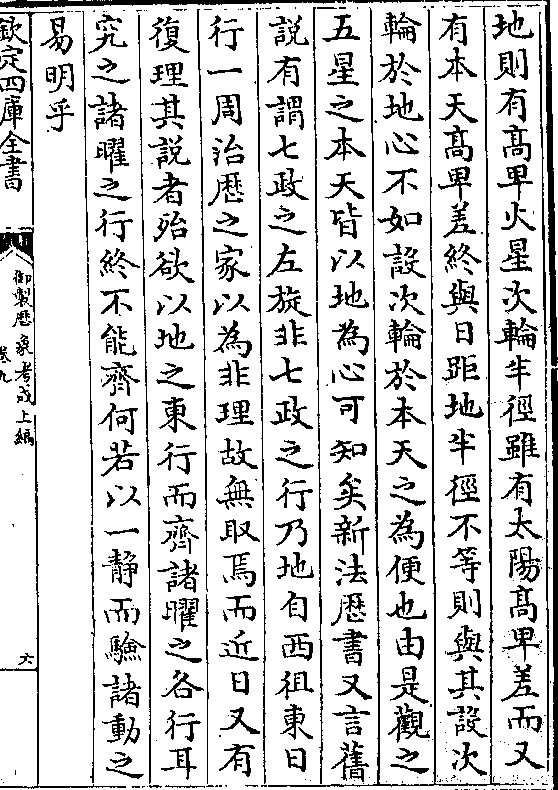 地則有髙卑火星次輪半徑雖有太陽髙卑差而又
有本天髙卑差終與日距地半徑不等則與其設次
輪於地心不如設次輪於本天之為便也由是觀之
五星之本天皆以地為心可知矣新法厯書又言舊
說有謂七政之左旋非七政之行乃地自西徂東日
行一周治厯之家以為非理故無取焉而近日又有
復理其説者殆欲以地之東行而齊諸曜之各行耳
究之諸曜之行終不能齊何若以一静而驗諸動之
易明乎
欽定四庫全書
御製厯象考成上編
卷九
六